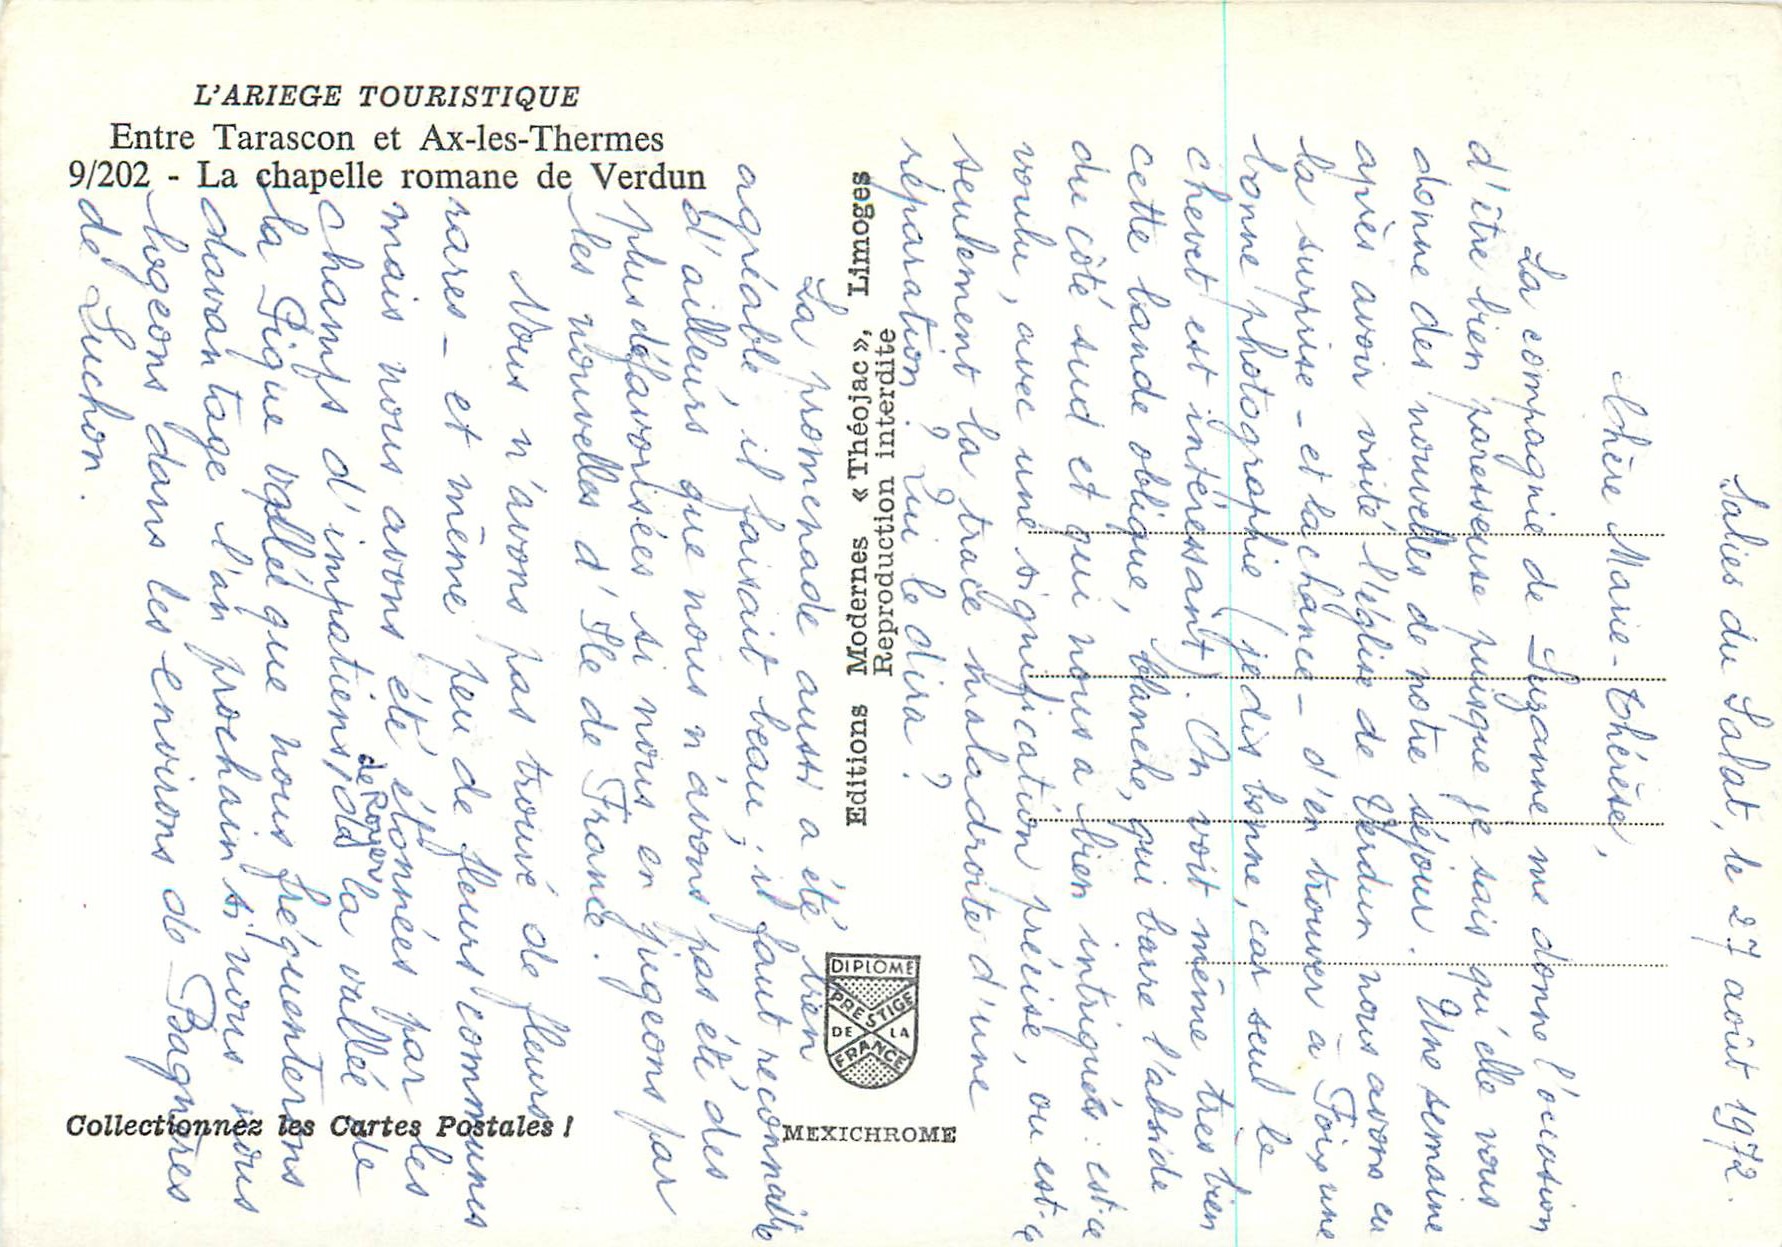 L'ARIEGE TOURISTIQUE
Entre Tarascon et Ax-les-Thermes
9/202 - La chapelle romane de Verdun
Editions Modernes « Théojac », Limoges
Reproduction interdite
DIPLOME
PRESTIGE
DE LA
FRANCE
MEXICHROME
Collectionnez les Cartes Postales !
Salies du Salat, le 27 août 1972.
Chère Marie-Thérèse,
La compagnie de Suzanne me donne l'occasion
d'être bien paresseuse puisque je sais qu'elle vous
donne des nouvelles de notre séjour. Une semaine
après avoir visité l'église de Verdun nous avons eu
la surprise - et la chance - d'en trouver à Foix une
bonne photographie (je dis bonne, car seul le
chevet est intéressant). On voit même très bien
cette bande oblique, blanche, qui barre l'abside
du côté sud et qui nous a bien intrigués : est-ce
voulu, avec une signification précise, ou est-ce
seulement la trace maladroite d'une
réparation ? Qui le dira ?
La promenade aussi a été bien
agréable, il faisait beau ; il faut reconnaître
d'ailleurs que nous n'avons pas été des
plus défavorisées si nous en jugeons par
les nouvelles d'Ile de France.
Nous n'avons pas trouvé de fleurs
rares - et même peu de fleurs communes
mais nous avons été étonnées par les
champs d'impatiens de Roger de la vallée de
la Pique vallée que nous fréquenterons
davantage l'an prochain si nous nous
logeons dans les environs de Bagnères
de Luchon.